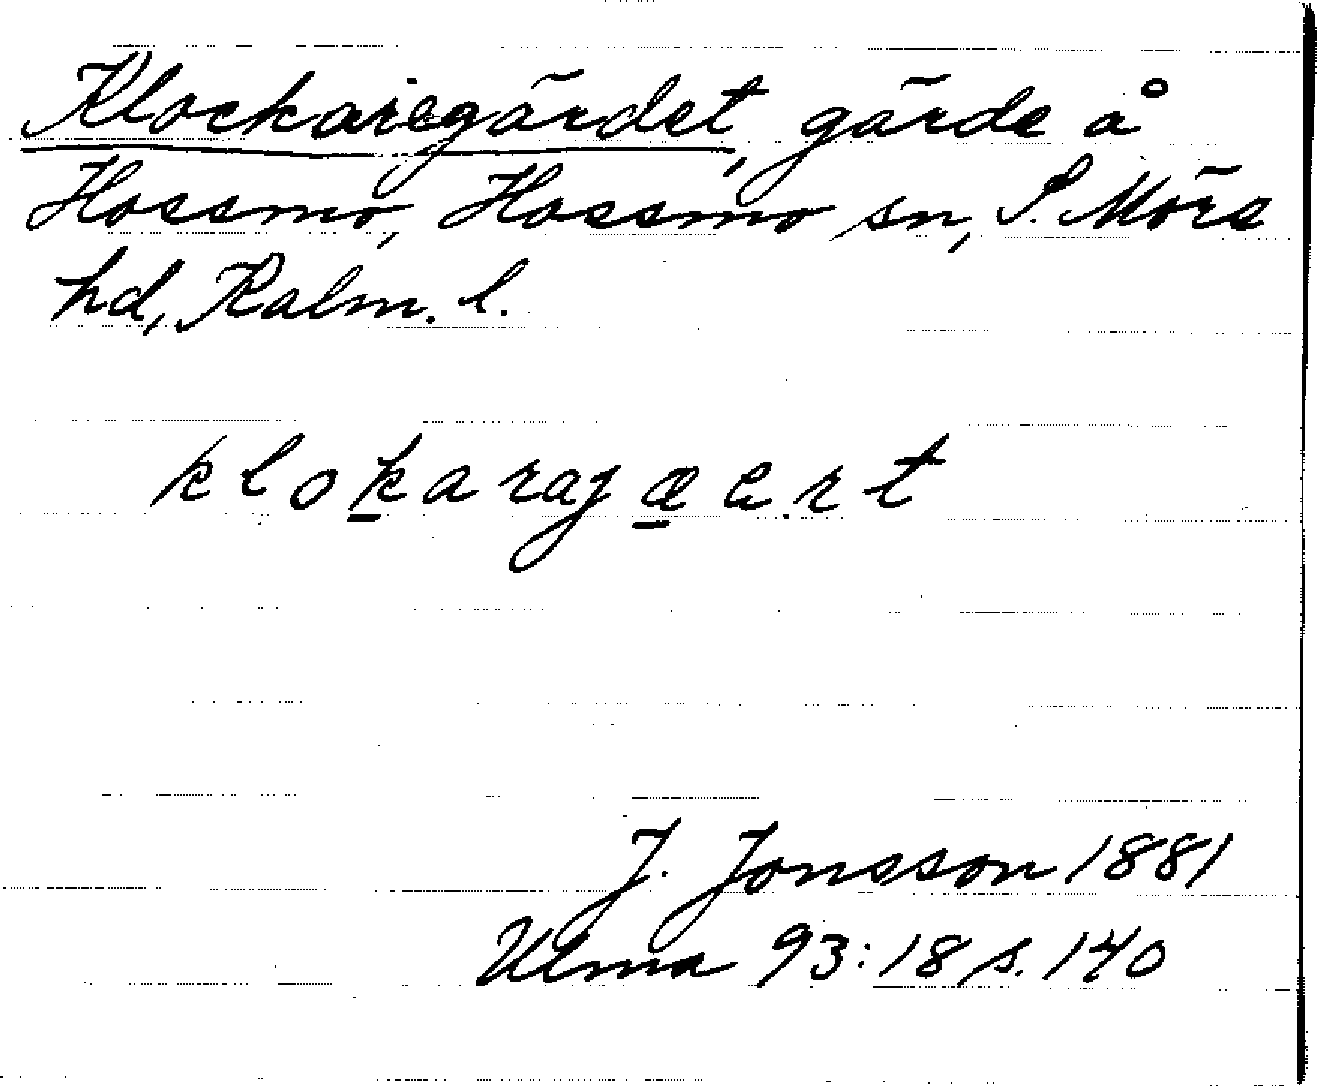 Klockaregärdet, gärde å
Hossmo, Hossmo sn, S. Möre
hd, Kalm. l.
J. Jonsson 1881
Ulma 93:18 s. 140